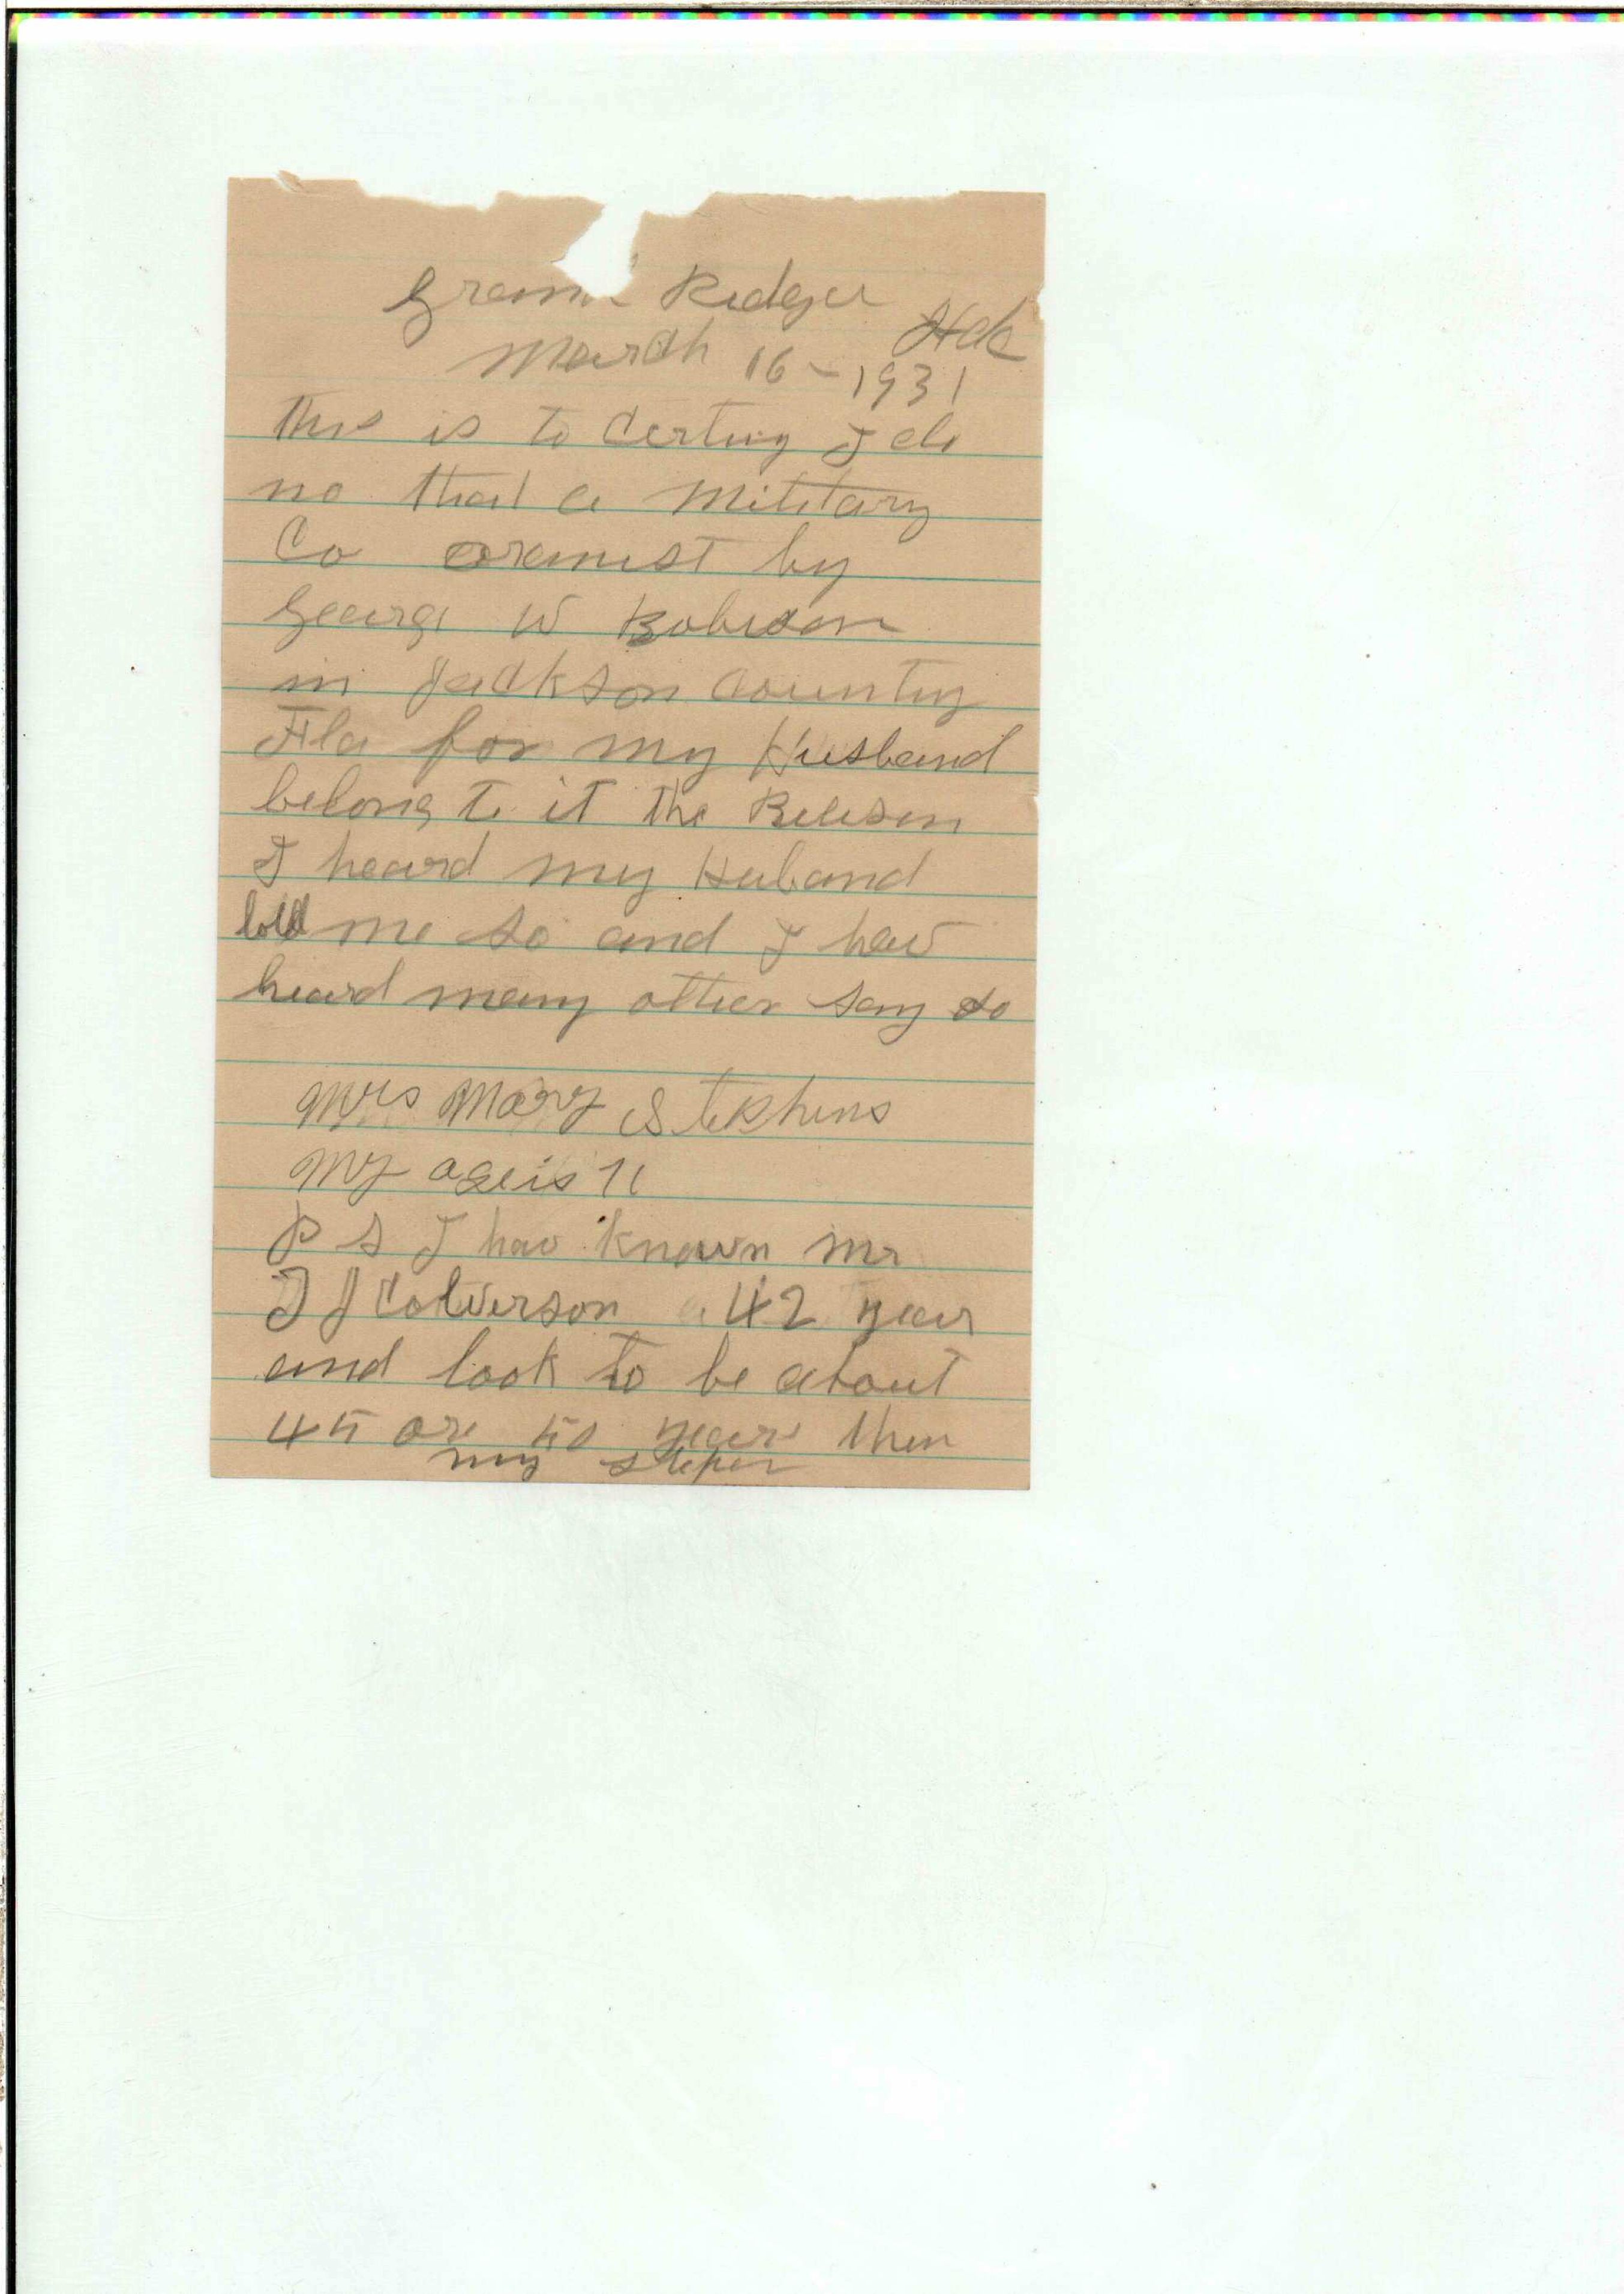 Ridge
Fla
March 16-1931
this is to Certiny I do
no that a Military
Co by
George W Robeson
in Jackson County
Fla for my Husband
belong to it the
I heard my Huband
told me so and I hav
heard many other say so
Mrs Mary Stephens
my age is 71
P S I hav known mr
J J Colverson 42 year
and look to be about
45 or 50 year then
my